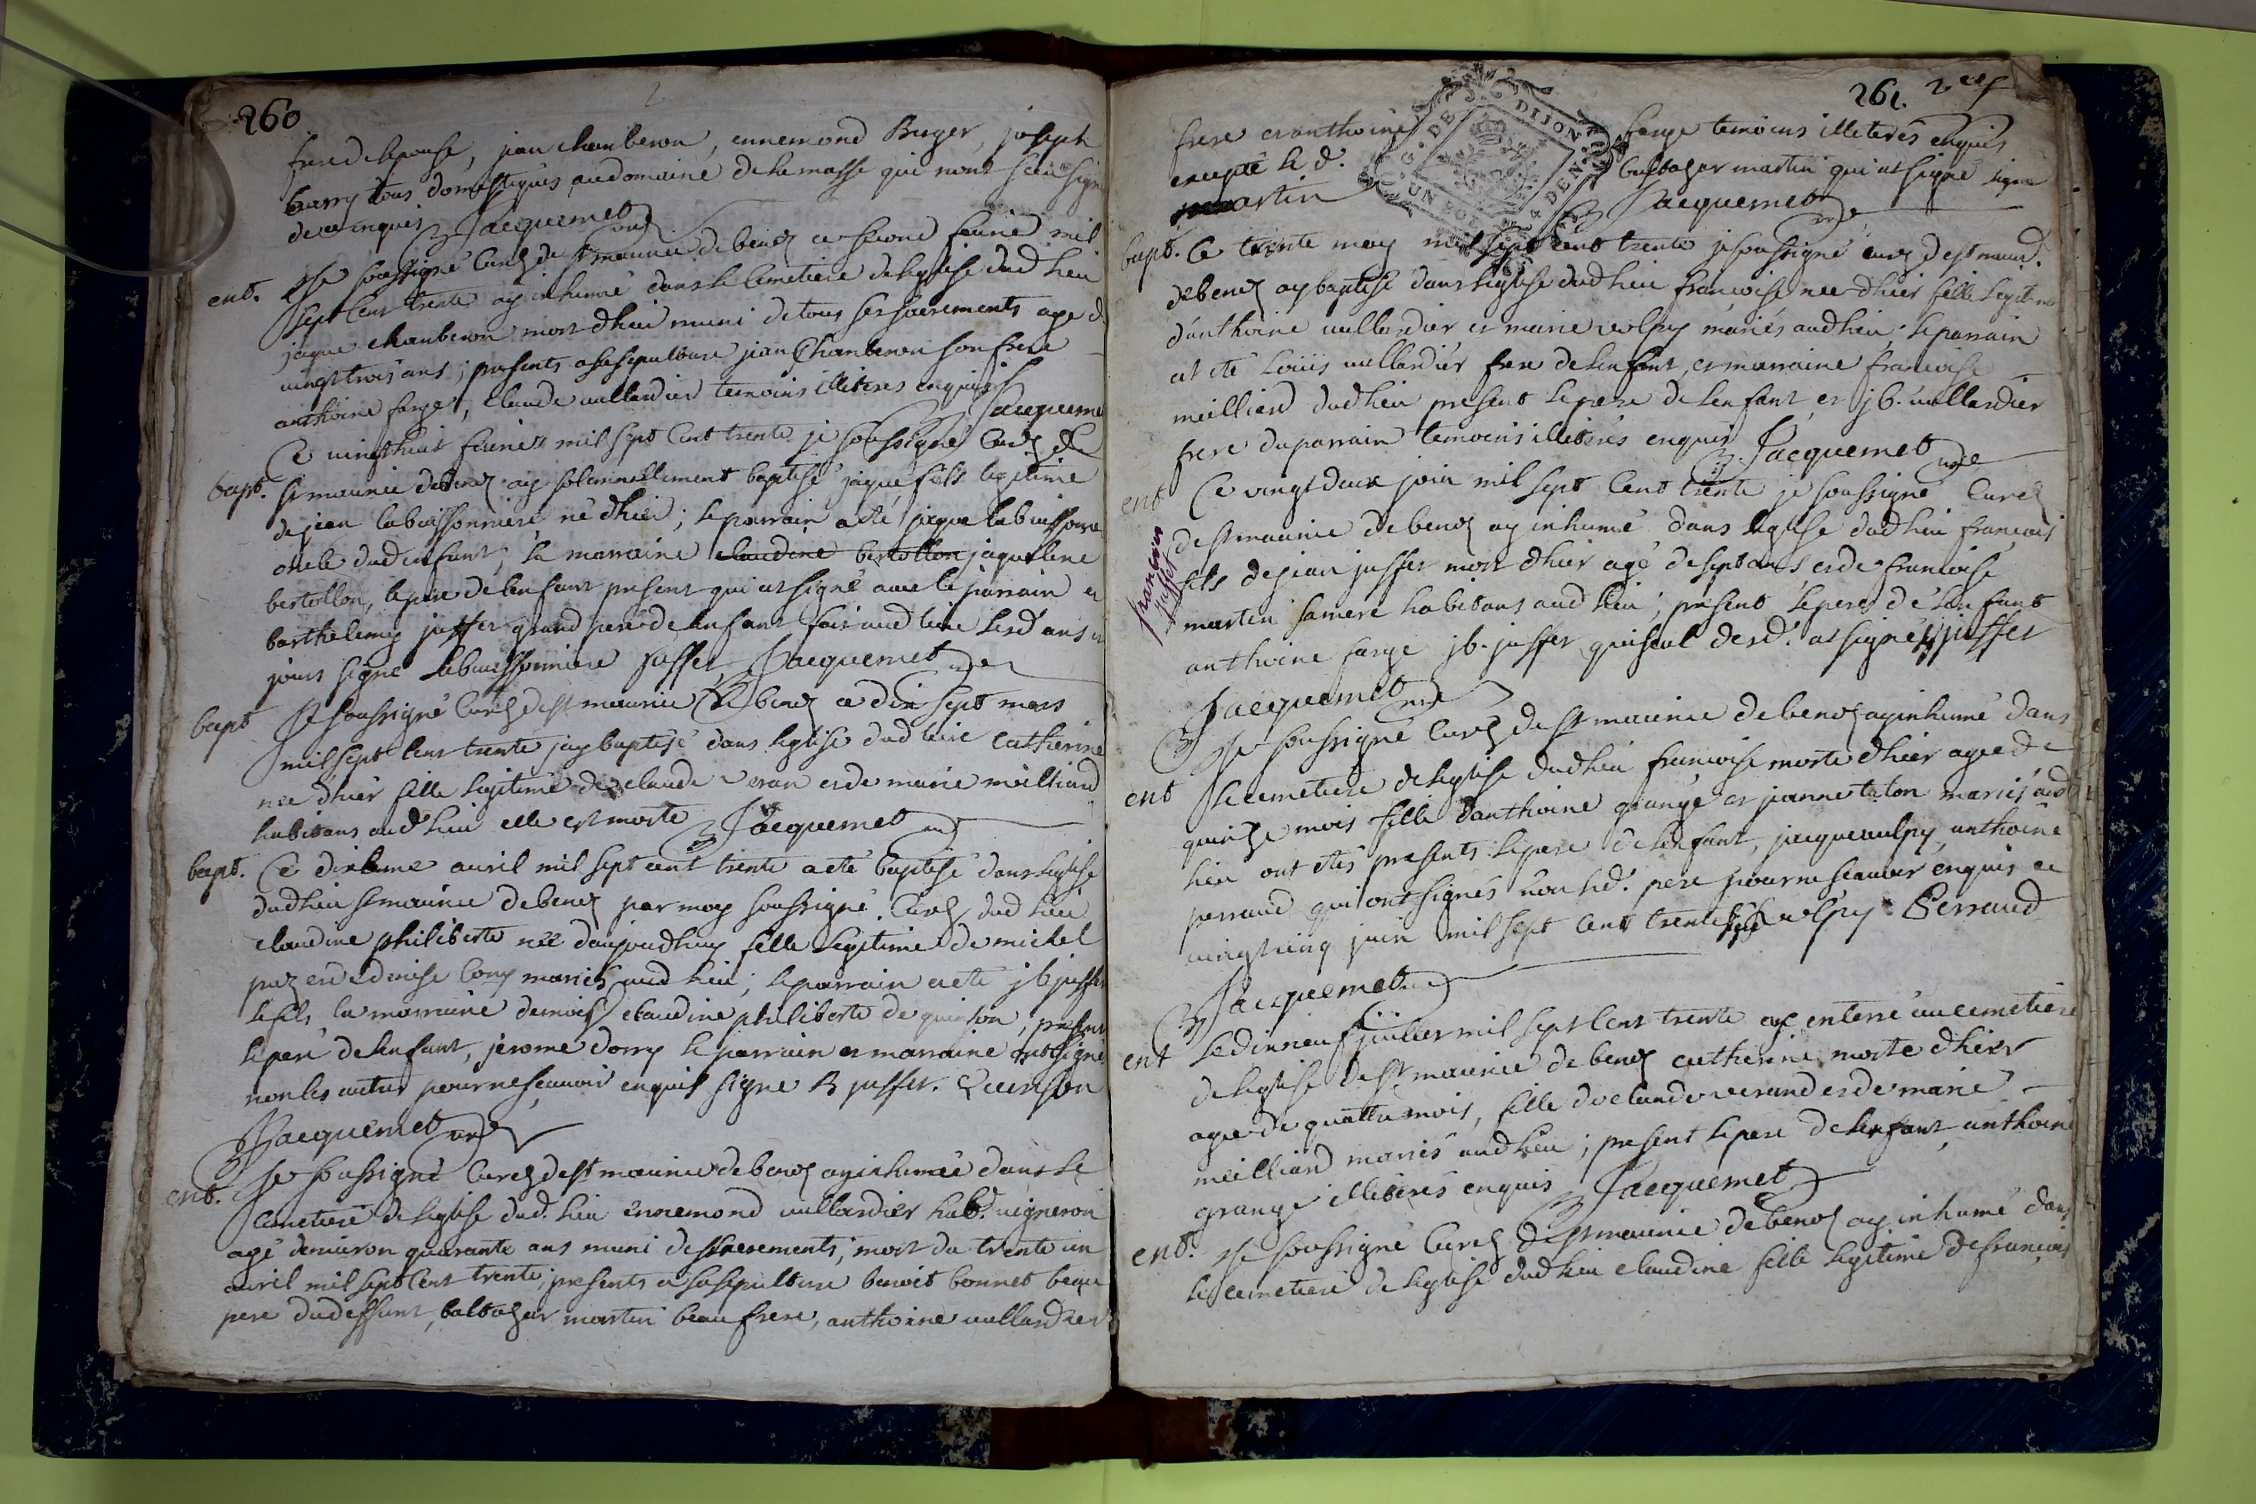 260
frere de lepouse, jean chamberon, ennemond Buger, joseph
barry tous domestiques au domaine de la masse qui nont sceu signe
de ce enquis Jacquemet curé
ent. Je soussigné Curéz de st maurice de benoz ce second feurié mil
sept Cent trente ay inhumé dans le Cemetiere de leglise dud lieu
jaque chamberon mort dhier muni de tous ses sacrements age de
uingt trois ans; presents a sa sepulture jean Chamberon son frere
anthoine farge, Claude uullardier temoins illiteres enquis Jacquemet
Ce uingthuit feurier mil sept Cent trente je soussigné Curéz de
bapt. st maurice de benoz ay solemnellement baptisé jaque fils legitime
de jean labuissonniere né dhier; le parrain a eté jaque labuissonniere
oncle dud enfant, la marraine claudine bertollon jaqueline
bertollon, le pere de lenfant present qui at signé auec le parrain et
barthelemy juffet grand pere de lenfant fait aud lieu lesd ans et
jours signe Labuissonniere juffet Jacquemet curé
bapt Je soussigné Curéz de st maurice de benoz ce dix sept mars
mil sept Cent trente jay baptisé dans leglise dud lieu Catherine
née dhier fille legitime de claude veran et de marie meilliand
habitans aud lieu elle est morte Jacquemet curé
bapt. Ce dixieme auril mil sept cent trente a eté baptisé dans leglise
dud lieu st maurice de benoz par moy soussigné Curéz dud lieu
claudine philiberte née daujourdhuy fille legitime de michel
et denise Cony mariés aud lieu; le parrain a eté jb juffet
le fils la marraine demois claudine philiberte de quinson, present
le pere de lenfant, jerome dorry le parrain et marraine ont signé
non les autres pour ne scauoir enquis signe B juffet. Quinson
Jacquemet curé
ent. Je soussigné Curéz de st maurice de benoz ay inhumé dans le
Cemetiere de leglise dud. lieu ennemond uullardier hab. uigneron
agé denuiron quarante ans muni des sacrements, mort du trente un
auril mil sept Cent trente, presents a sa sepulture benoit bonnet beau
pere dud deffunt, baltazar martin beau frere, anthoine uullardier
261. 2
frere et anthoine farge temoins illiterés enquis
excepté le d. baltazar martin qui at signé signe
martin Jacquemet curé
DIJON
bapt. Ce trente may mil sept cent trente je soussigné curé de st maurice
de benoz ay baptisé dans leglise dud lieu francoise née dhier fille legitime
danthoine uullardier et marie vulpy mariés aud lieu; le parrain
at eté Louis uullardier frere de lenfant, et marraine francoise
meilliand dud lieu present le pere de lenfant et jb. uullardier
frere du parrain temoins illiterés enquis Jacquemet curé
ent Ce vingt deux juin mil sept Cent trente je soussigné Curéz
francois juffet
de st maurice de benoz ay inhumé dans leglise dud lieu françois
fils de jean juffet mort dhier agé de sept ans et de francoise
martin sa mere habitans aud lieu; present le pere de lenfant
anthoine farge jb. juffet qui seul desd. at signé juffet
Jacquemet curé
Je soussigné Curéz de st maurice de benoz ay inhumé dans
ent le cemetiere de leglise dud lieu francoise morte dhier agée de
quinze mois fille danthoine grange et jeanne teton mariés aud
lieu ont etés presents le pere de lenfant, jacque uulpy, anthoine
perraud qui ont signés non led. pere pour ne scauoir enquis ce
uingt cinq juin mil sept Cent trente vulpy Perraud
Jacquemet curé
ent Le dixneuf juillet mil sept Cent trente ay enterré au cemetiere
de leglise de st maurice de benoz catherine morte dhier
agée de quattre mois, fille de claude verand et de marie
meilliand mariés aud lieu; present le pere de lenfant, anthoine
grange illiterés enquis Jacquemet
ent. Je soussigné Curéz de st maurice de benoz ay inhumé dans
le cemetiere de leglise dud lieu claudine fille legitime de francois